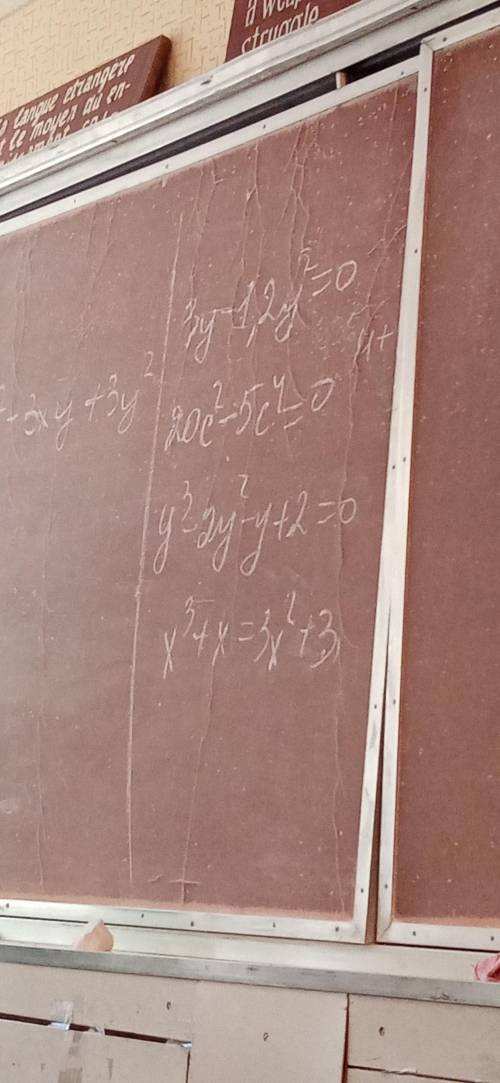 langue étrangère
le moyen du en-
a weap
struggle
-3xy+3y²
3y-1,2y²=0
20c²-5c⁴=0
y³-2y²-y+2=0
x³+x=3x²+3